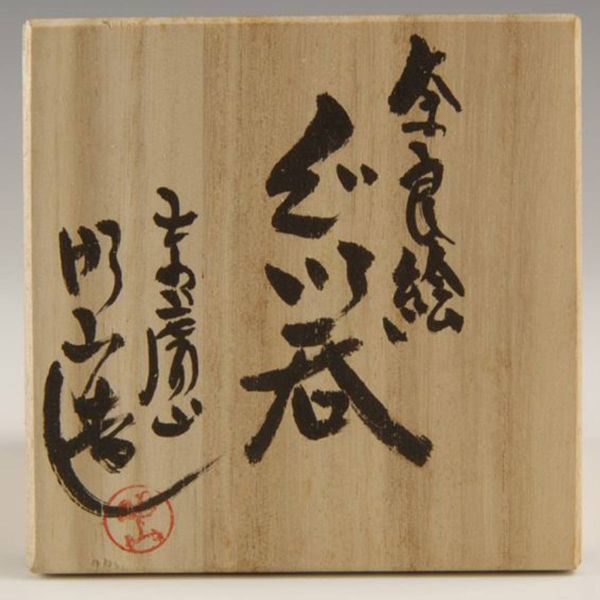 奈良絵
ぐい呑
赤膚山
明山造